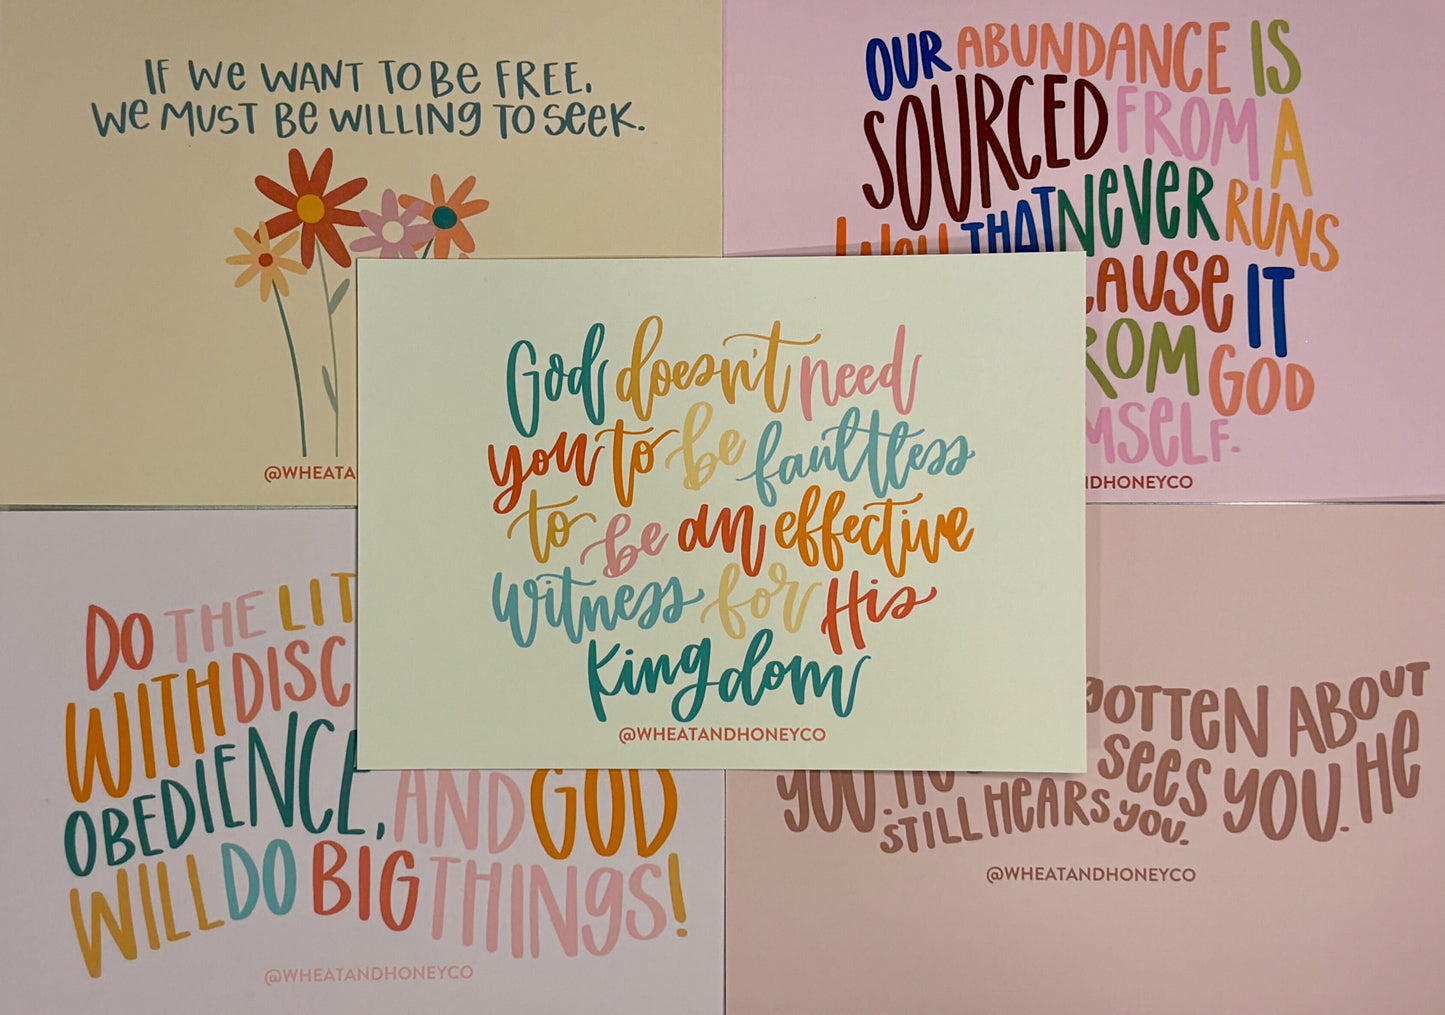 IF WE WANT TO BE FREE,
WE MUST BE WILLING TO SEEK.
@WHEATA
OUR ABUNDANCE IS
SOURCED FROM A
WELL THAT NEVER RUNS
CAUSE IT
ROM GOD
MSELF.
NDHONEYCO
God doesn't need
you to be faultless
to be an effective
witness for His
Kingdom
@WHEATANDHONEYCO
DO THE LIT
WITH DISC
OBEDIENCE, AND GOD
WILL DO BIG THINGS!
@WHEATANDHONEYCO
GOTTEN ABOUT
YOU. SEES YOU. HE
STILL HEARS YOU.
@WHEATANDHONEYCO